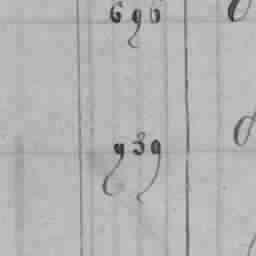 696
939